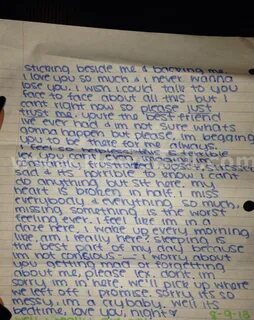 sticking beside me & backing me.
I love you so much & I never wanna
lose you. I wish I could talk to you
face to face about all this but I
cant right now so please just
trust me. you're the best friend
ive ever had & im not sure whats
gonna happen but please, im begging
you to be there for me always.
I feel so helpless
lex you cant even
constantly frustrated
sad & its horrible to know I cant
do anything but sit here. my
heart is broken in half. I miss
everybody & everything so much,
missing something is the worst
feeling ever. I feel like im in a
daze here, I wake up every morning
like, am I really here? sleeping is
the best part of my day because
im not concious -__- I worry about
you getting mad or forgetting
about me, please lex. dont. im
sorry im in here. we'll pick up where
we left off I promise. sorry its so
messy, im a crybaby. well its
bedtime, love you, night ♥
8-9-13